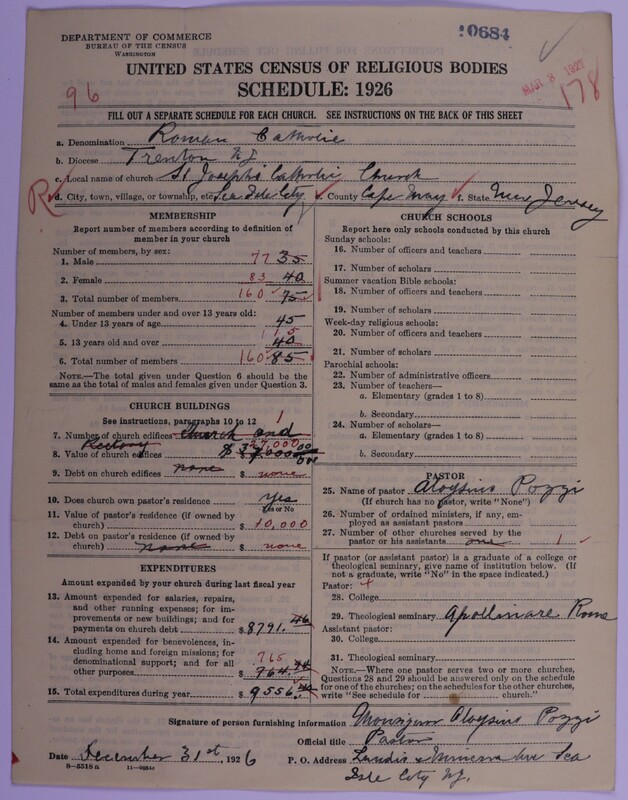 DEPARTMENT OF COMMERCE
BUREAU OF THE CENSUS
WASHINGTON
10684
MAR 8 1927
178
96
UNITED STATES CENSUS OF RELIGIOUS BODIES
SCHEDULE: 1926
FILL OUT A SEPARATE SCHEDULE FOR EACH CHURCH. SEE INSTRUCTIONS ON THE BACK OF THIS SHEET
a. Denomination Roman Catholic
b. Diocese Trenton NJ
c. Local name of church St Josephs Catholic Church
R d. City, town, village, or township, etc. Sea Isle City e. County Cape May f. State New Jersey
MEMBERSHIP
Report number of members according to definition of member in your church
Number of members, by sex:
1. Male 77 35
2. Female 83 40
3. Total number of members 160 75
Number of members under and over 13 years old:
4. Under 13 years of age 45
5. 13 years old and over 115 40
6. Total number of members 160 85
NOTE.—The total given under Question 6 should be the same as the total of males and females given under Question 3.
CHURCH BUILDINGS
See instructions, paragraphs 10 to 12
7. Number of church edifices 1 Church and Rectory
8. Value of church edifices 27,000 $ 37,000 00
9. Debt on church edifices none $ none
10. Does church own pastor's residence Yes
Yes or No
11. Value of pastor's residence (if owned by church) $ 10,000
12. Debt on pastor's residence (if owned by church) none $ none
EXPENDITURES
Amount expended by your church during last fiscal year
13. Amount expended for salaries, repairs, and other running expenses; for improvements or new buildings; and for payments on church debt $ 8791.46
14. Amount expended for benevolences, including home and foreign missions; for denominational support; and for all other purposes 765 $ 764.
15. Total expenditures during year $ 9556.
CHURCH SCHOOLS
Report here only schools conducted by this church
Sunday schools:
16. Number of officers and teachers
17. Number of scholars
Summer vacation Bible schools:
18. Number of officers and teachers
19. Number of scholars
Week-day religious schools:
20. Number of officers and teachers
21. Number of scholars
Parochial schools:
22. Number of administrative officers
23. Number of teachers—
a. Elementary (grades 1 to 8)
b. Secondary
24. Number of scholars—
a. Elementary (grades 1 to 8)
b. Secondary
PASTOR
25. Name of pastor Aloysius Pozzi
(If church has no pastor, write "None")
26. Number of ordained ministers, if any, employed as assistant pastors
27. Number of other churches served by the pastor or his assistants one 1
If pastor (or assistant pastor) is a graduate of a college or theological seminary, give name of institution below. (If not a graduate, write "No" in the space indicated.)
Pastor:
28. College
29. Theological seminary Apollinare Rome
Assistant pastor:
30. College
31. Theological seminary
NOTE.—Where one pastor serves two or more churches, Questions 28 and 29 should be answered only on the schedule for one of the churches; on the schedules for the other churches, write "See schedule for church."
Signature of person furnishing information Monsignor Aloysius Pozzi
Official title Pastor
Date December 31st, 1926 P. O. Address Landis & Minerva Ave Sea
Isle City NJ.
8—5518a 11—9284